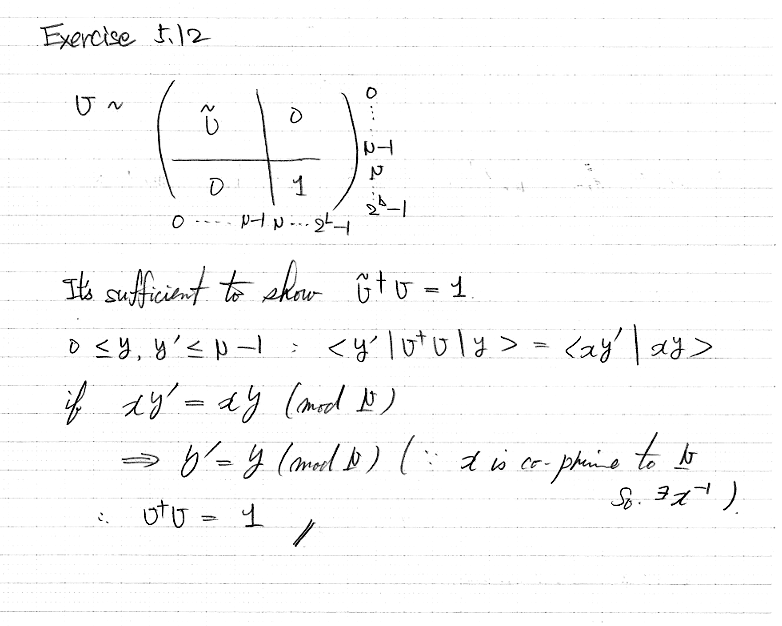 Exercise 5.12
U ~ ( Ũ | 0 ) 0
⋮
N-1
( 0 | 1 ) N
⋮
2^L-1
0 ---- N-1 N ... 2^L-1
It's sufficient to show Ũ†U = 1.
0 ≤ y, y' ≤ N-1 : <y'|U†U|y> = <xy'|xy>
if xy' = xy (mod N)
⇒ y' = y (mod N) (∵ x is co-prime to N
So. ∃x⁻¹).
∴ U†U = 1 //